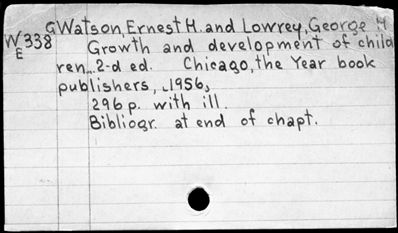 GWatson, Ernest H. and Lowrey, George H
W338 Growth and development of child
E ren... 2-d ed. Chicago, the Year book
publishers, [1956]
296 p. with ill.
Bibliogr. at end of chapt.